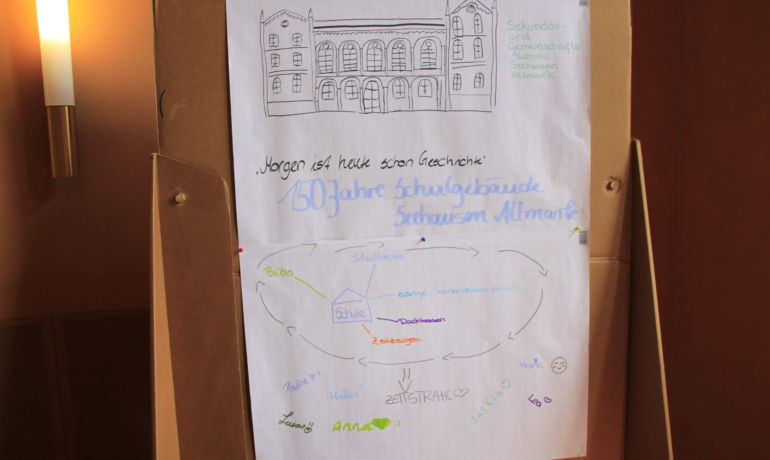 Sekundar-
und
Gemeinschafts-
Schule
Seehausen
Altmark
„Morgen ist heute schon Geschichte"
150 Jahre Schulgebäude
Seehausen Altmark
Stadtarchiv
Bibo
evangl.
Schule
Dachboden
Zeitzeugen
Marie
Pauline
ZEITSTRAHL
Saskia
Lea
Lucas
Anna